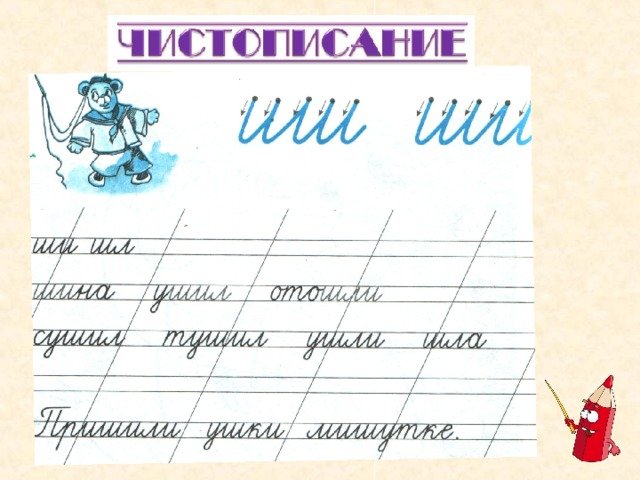 ЧИСТОПИСАНИЕ
ши ши
ши шл
шина ушил отошли
сушил тушил ушли шла
Пришили ушки мишутке.